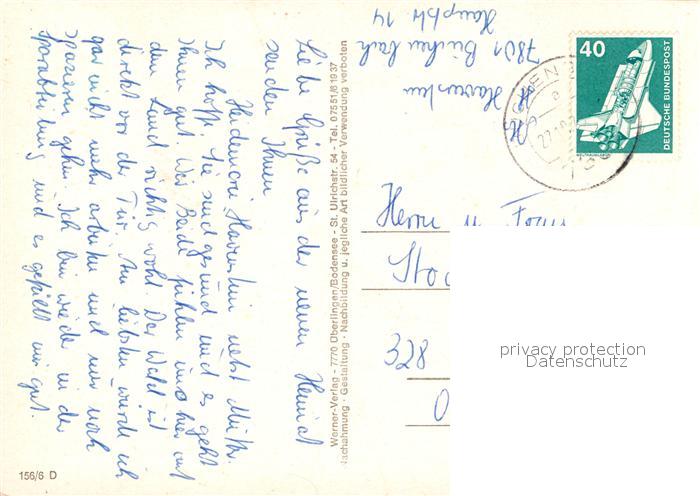 Liebe Grüße aus der neuen Heimat
senden Ihnen
Heidemarie Havenstein nebst Mutti.
Ich hoffe, Sie sind gesund und es geht
Ihnen gut. Wir Beide fühlen uns hier auf
dem Land richtig wohl. Der Wald ist
direkt vor der Tür. Am liebsten würde ich
gar nicht mehr arbeiten und nur noch
spazieren gehen. Ich bin wieder in der
und es gefällt mir gut.
156/6 D
Werner-Verlag - 7770 Überlingen/Bodensee - St. Ulrichstr. 54 - Tel. 07551/61937
Nachahmung - Gestaltung - Nachbildung u. jegliche Art bildlicher Verwendung verboten
H. Havenstein
7801 Buchenbach
Hauptstr 14
40
DEUTSCHE BUNDESPOST
WELTRAUMLABOR
Herrn u. Frau
328
privacy protection
Datenschutz